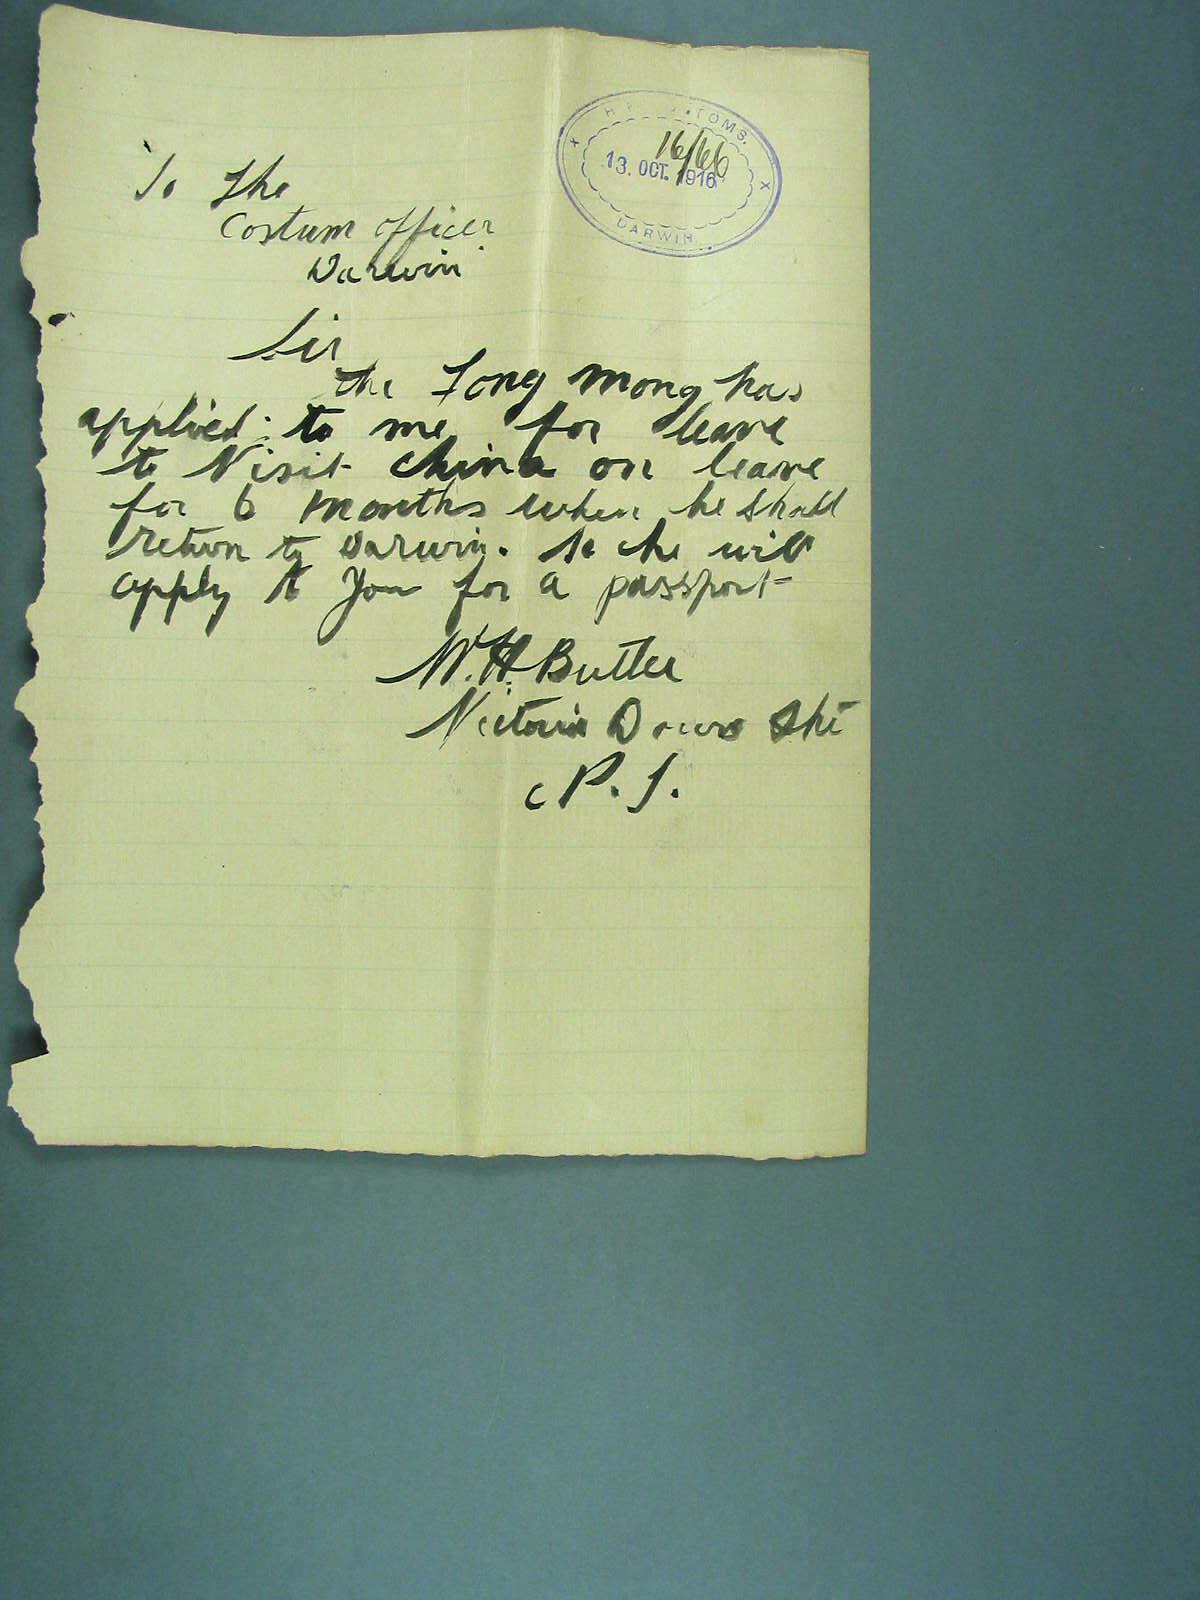 H. M. CUSTOMS.
16/66
13. OCT. 1916
DARWIN.
To The
Costum officer
Darwin
Sir
the Fong mong has
applied to me for leave
to Visit China on leave
for 6 months when he shall
return to Darwin. So he will
apply to you for a passport
W. H. Butler
Victoria Downs
P. J.